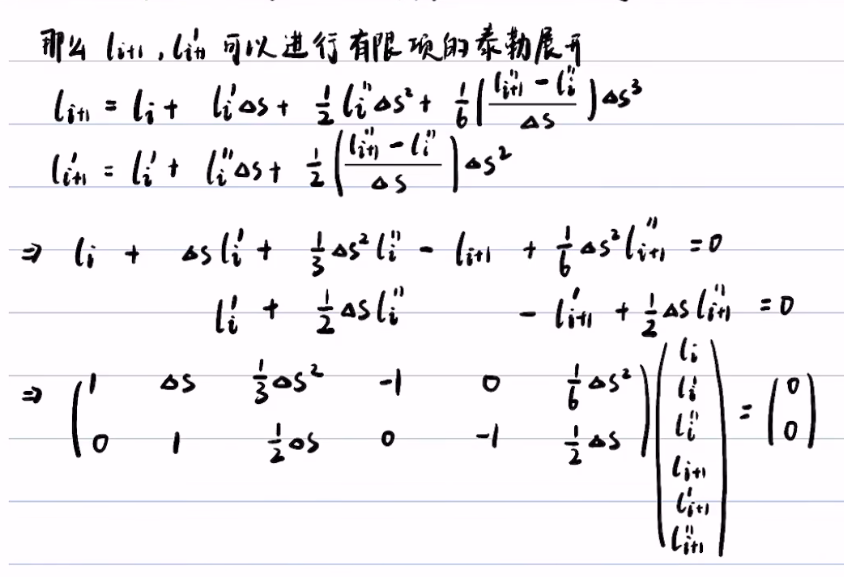 那么 l_{i+1}, l'_{i+1} 可以进行有限项的泰勒展开
l_{i+1} = l_i + l_i'Δs + 1/2 l_i''Δs² + 1/6 ( (l''_{i+1} - l_i'') / Δs ) Δs³
l'_{i+1} = l_i' + l_i''Δs + 1/2 ( (l''_{i+1} - l_i'') / Δs ) Δs²
⇒ l_i + Δs l_i' + 1/3 Δs² l_i'' - l_{i+1} + 1/6 Δs² l''_{i+1} = 0
l_i' + 1/2 Δs l_i'' - l'_{i+1} + 1/2 Δs l''_{i+1} = 0
⇒ ( 1 Δs 1/3 Δs² -1 0 1/6 Δs² ) ( l_i
0 1 1/2 Δs 0 -1 1/2 Δs
l_i'
l_i''
l_{i+1}
l'_{i+1}
l''_{i+1} ) = ( 0
0 )